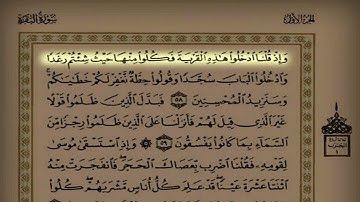 الجزء الأول
سورة البقرة
وَإِذْ قُلْنَا ادْخُلُوا هَٰذِهِ الْقَرْيَةَ فَكُلُوا مِنْهَا حَيْثُ شِئْتُمْ رَغَدًا
وَادْخُلُوا الْبَابَ سُجَّدًا وَقُولُوا حِطَّةٌ نَّغْفِرْ لَكُمْ خَطَايَاكُمْ ۚ
وَسَنَزِيدُ الْمُحْسِنِينَ ٥٨ فَبَدَّلَ الَّذِينَ ظَلَمُوا قَوْلًا
غَيْرَ الَّذِي قِيلَ لَهُمْ فَأَنزَلْنَا عَلَى الَّذِينَ ظَلَمُوا رِجْزًا مِّنَ
السَّمَاءِ بِمَا كَانُوا يَفْسُقُونَ ٥٩ وَإِذِ اسْتَسْقَىٰ مُوسَىٰ
لِقَوْمِهِ فَقُلْنَا اضْرِب بِّعَصَاكَ الْحَجَرَ ۖ فَانفَجَرَتْ مِنْهُ
اثْنَتَا عَشْرَةَ عَيْنًا ۖ قَدْ عَلِمَ كُلُّ أُنَاسٍ مَّشْرَبَهُمْ ۖ كُلُوا